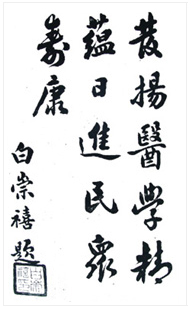 發揚醫學精
蘊日進民眾
壽康
白崇禧題